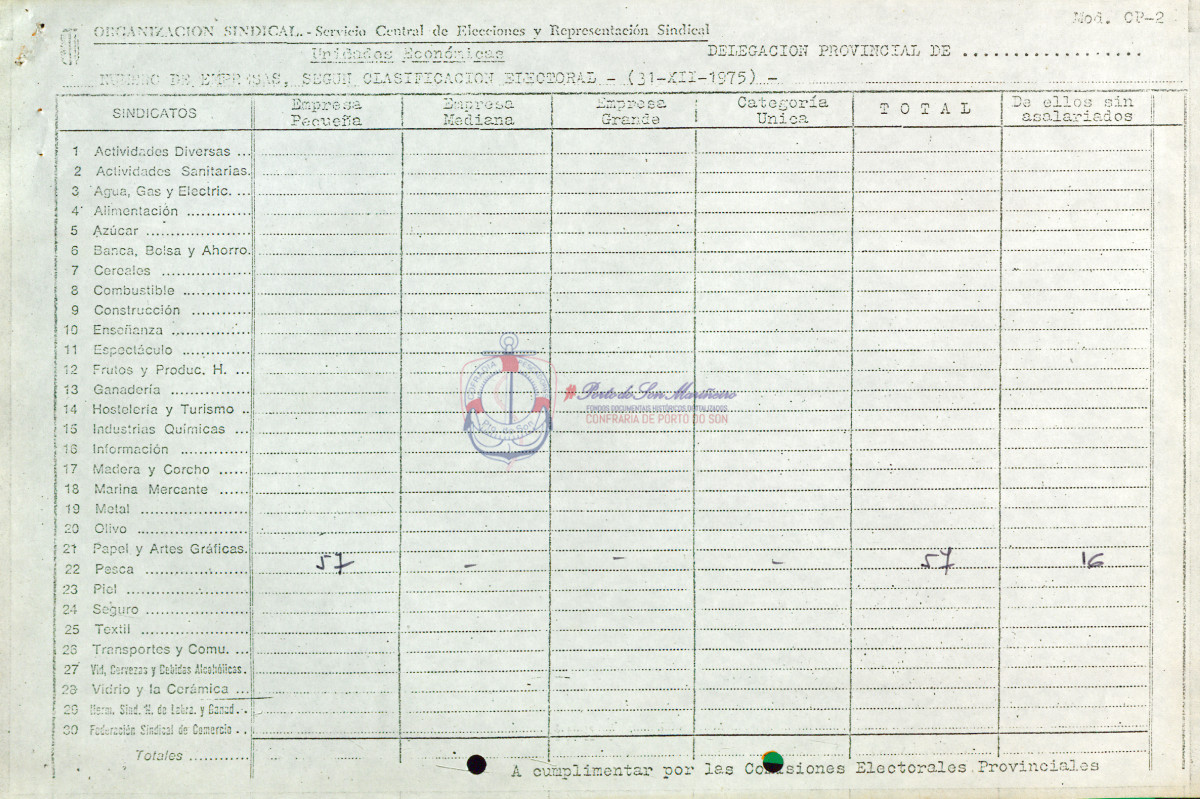 Mod. CP-2
ORGANIZACION SINDICAL.- Servicio Central de Elecciones y Representación Sindical
Unidades Económicas
DELEGACION PROVINCIAL DE ..................
NUMERO DE EMPRESAS, SEGUN CLASIFICACION ELECTORAL - (31-XII-1975) -
SINDICATOS Empresa Pequeña Empresa Mediana Empresa Grande Categoría Unica TOTAL De ellos sin asalariados
1 Actividades Diversas ...
2 Actividades Sanitarias.
3 Agua, Gas y Electric. ...
4 Alimentación .............
5 Azúcar ...................
6 Banca, Bolsa y Ahorro.
7 Cereales .................
8 Combustible .............
9 Construcción ............
10 Enseñanza ..............
11 Espectáculo .............
12 Frutos y Produc. H. ...
13 Ganadería ...............
14 Hostelería y Turismo ..
15 Industrias Químicas ...
16 Información .............
17 Madera y Corcho .....
18 Marina Mercante ......
19 Metal .....................
20 Olivo .....................
21 Papel y Artes Gráficas.
22 Pesca .................. 57 - - - 57 16
23 Piel .......................
24 Seguro ...................
25 Textil .....................
26 Transportes y Comu. ...
27 Vid, Cervezas y Bebidas Alcohólicas.
28 Vidrio y la Cerámica ...
29 Herm. Sind. N. de Labra. y Ganad. . .
30 Federación Sindical de Comercio . .
Totales ............
A cumplimentar por las Comisiones Electorales Provinciales
#Porto do Son Mariñeiro
FONDOS DOCUMENTAIS HISTÓRICOS DIXITALIZADOS
CONFRARÍA DE PORTO DO SON